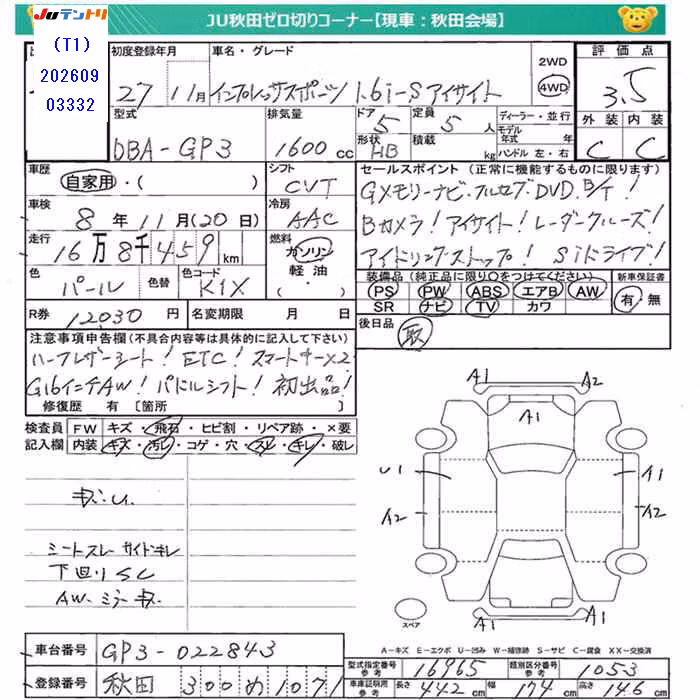 JUテントリ JU秋田ゼロ切りコーナー【現車：秋田会場】
(T1)
202609
03332
初度登録年月 車名・グレード 2WD 4WD 評価点
27 11月 インプレッサスポーツ 1.6i-S アイサイト 3.5
型式 排気量 ドア 5 定員 5人 ディーラー・並行 外装 内装
DBA-GP3 1600cc 形状 HB 積載 kg モデル年式 年式 ハンドル 左・右 C C
車歴 シフト セールスポイント（正常に機能するものに限ります）
自家用・( ) CVT GXメモリーナビ・フルセグ・DVD、B/T！
車検 8年11月(20日) 冷房 AAC Bカメラ！アイサイト！レーダークルーズ！
走行 16万8千459km 燃料 ガソリン アイドリングストップ！SIドライブ！
軽油・( )
色 色替 色コード 装備品（純正品に限り○をつけてください） 新車保証書
パール K1X PS PW ABS エアB AW 有・無
SR ナビ TV カワ
R券 12030円 名変期限 月 日 後日品 取
注意事項申告欄（不具合内容等は具体的に記入して下さい）
ハーフレザーシート！ETC！スマートキー×2
G16インチAW！パドルシフト！初出品！
修復歴 有 [箇所 ]
検査員 FW キズ・飛石・ヒビ割・リペア跡・×要
記入欄 内装 キズ・汚レ・コゲ・穴・スレ・キレ・破レ
A1 A2
A1
U1 A1
A2 A2
キズ・U.
シートスレ サイドキレ
下回りSC
AW・ミラーキズ
A1 A1
スペア
A－キズ E－エクボ U－凹み W－補修跡 S－サビ C－腐食 XX－交換済
車台番号 GP3-022843
型式指定番号 参考 16965 類別区分番号 参考 1053
登録番号 秋田 300 め 1071
車庫証明用 参考 長さ 442cm 幅 174cm 高さ 146cm